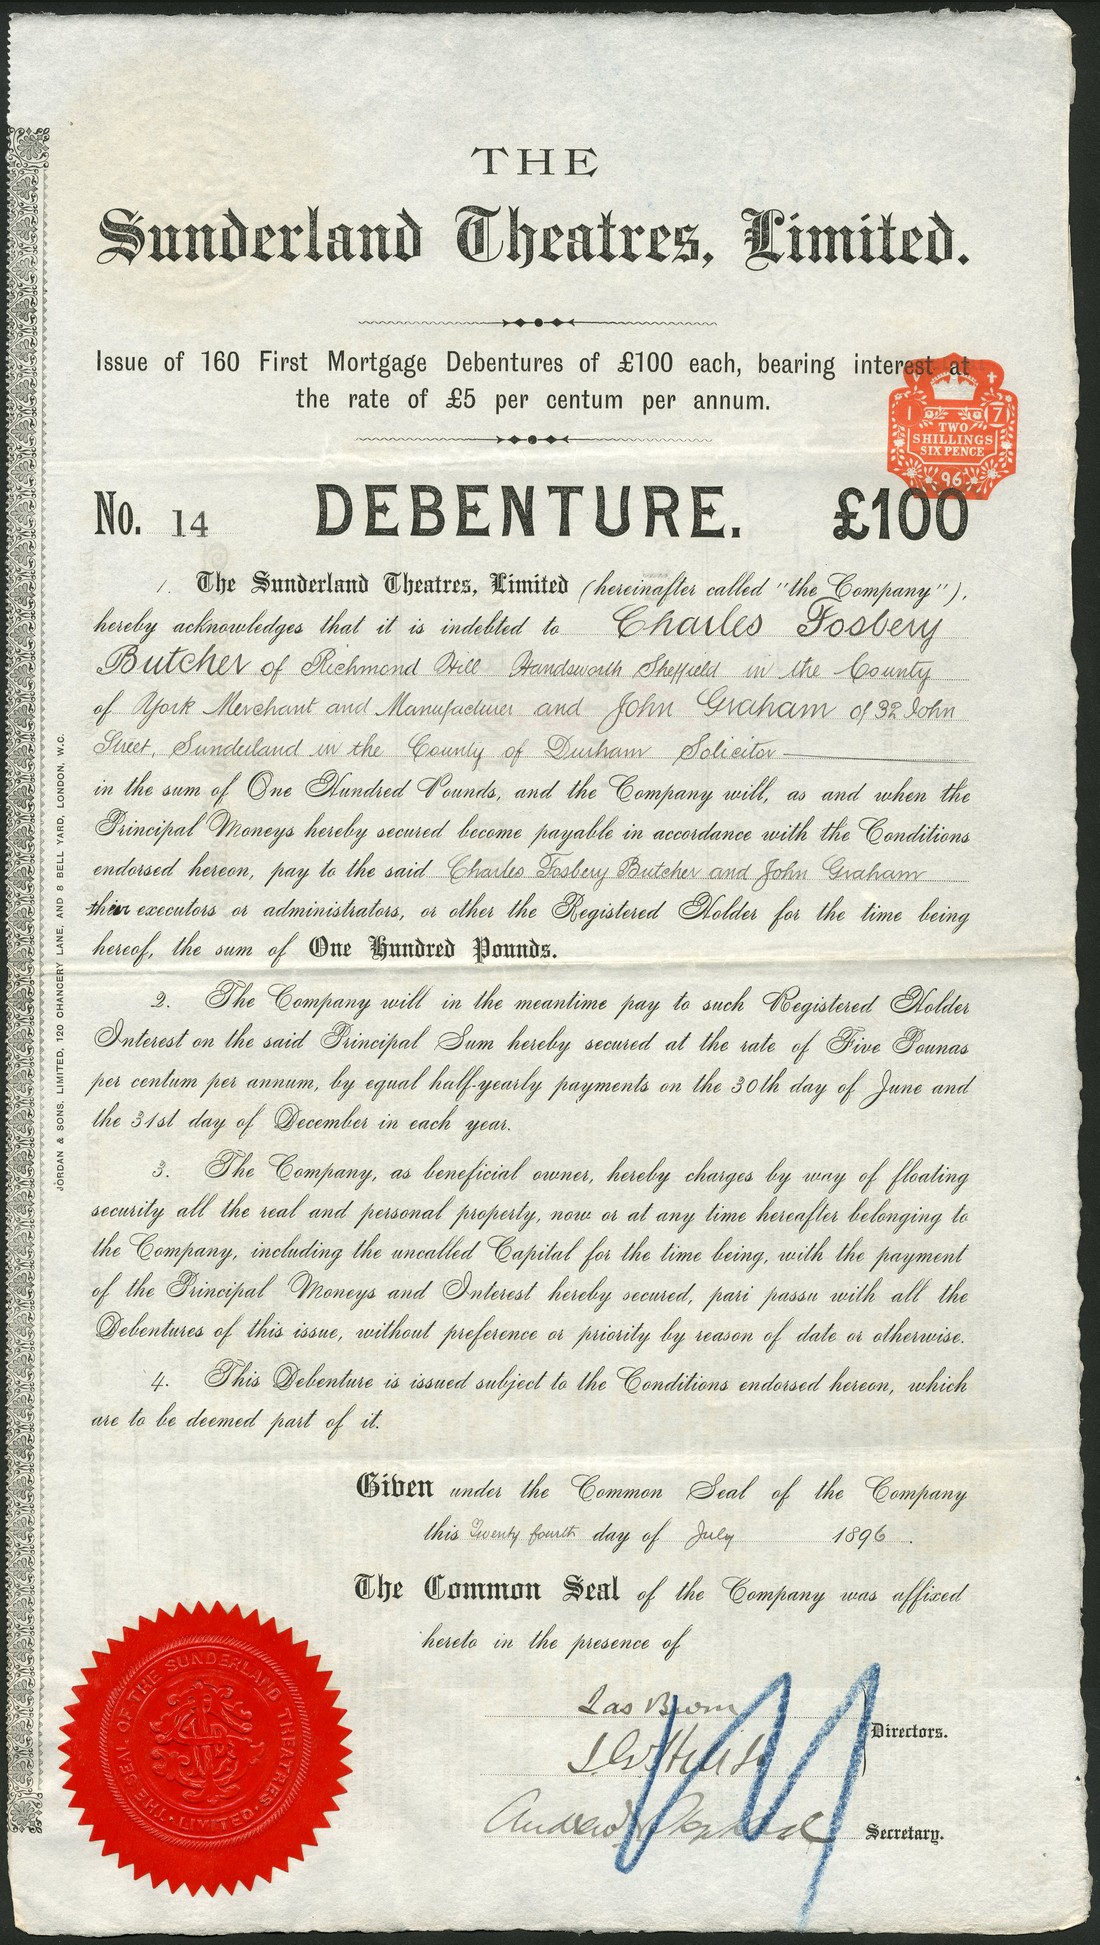 THE
Sunderland Theatres, Limited.
Issue of 160 First Mortgage Debentures of £100 each, bearing interest at
the rate of £5 per centum per annum.
1 7
TWO
SHILLINGS
SIX PENCE
96
No. 14 DEBENTURE. £100
1. The Sunderland Theatres, Limited (hereinafter called "the Company"),
hereby acknowledges that it is indebted to Charles Fosbery
Butcher of Richmond Hill Handsworth Sheffield in the County
of York Merchant and Manufacturer and John Graham of 32 John
Street, Sunderland in the County of Durham Solicitor
in the sum of One Hundred Pounds, and the Company will, as and when the
Principal Moneys hereby secured become payable in accordance with the Conditions
endorsed hereon, pay to the said Charles Fosbery Butcher and John Graham
their executors or administrators, or other the Registered Holder for the time being
hereof, the sum of One Hundred Pounds.
2. The Company will in the meantime pay to such Registered Holder
Interest on the said Principal Sum hereby secured at the rate of Five Pounds
per centum per annum, by equal half-yearly payments on the 30th day of June and
the 31st day of December in each year.
3. The Company, as beneficial owner, hereby charges by way of floating
security all the real and personal property, now or at any time hereafter belonging to
the Company, including the uncalled Capital for the time being, with the payment
of the Principal Moneys and Interest hereby secured, pari passu with all the
Debentures of this issue, without preference or priority by reason of date or otherwise.
4. This Debenture is issued subject to the Conditions endorsed hereon, which
are to be deemed part of it.
Given under the Common Seal of the Company
this Twenty fourth day of July 1896.
The Common Seal of the Company was affixed
hereto in the presence of
Directors.
Andrew
Secretary.
THE SEAL OF THE SUNDERLAND THEATRES, LIMITED.
JORDAN & SONS, LIMITED, 120 CHANCERY LANE, AND 8 BELL YARD, LONDON, W.C.